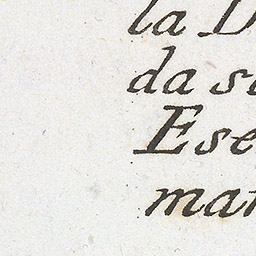 la D
da se
Ese
mar